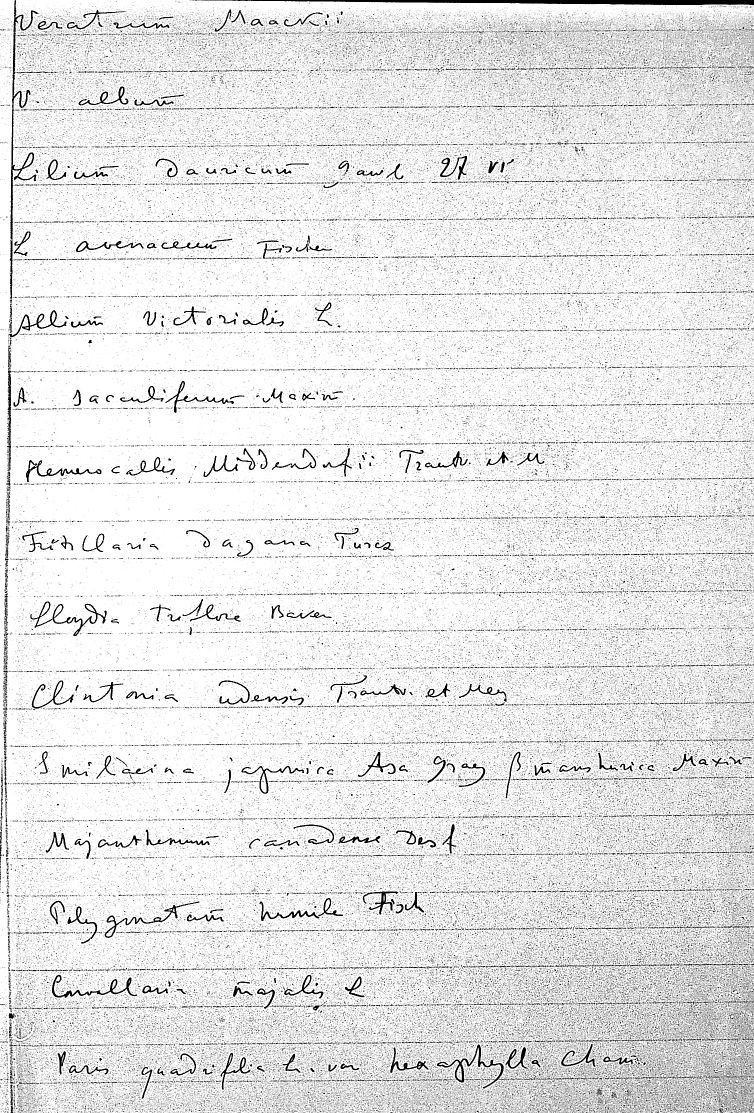 Veratrum Maackii
V. album
Lilium dauricum Gawl 27 VI
L avenaceum Fischer
Allium Victorialis L.
A. sacculiferum Maxim.
Hemerocallis Middendorfii Trautv. et M
Fritillaria dagana Turcz
Lloydia triflora Baker
Clintonia udensis Trautv. et Mey
Smilacina japonica Asa Gray β manshurica Maxim
Majanthemum canadense Desf
Polygonatum humile Fisch
Convallaria majalis L
Paris quadrifolia L. var hexaphylla Cham.